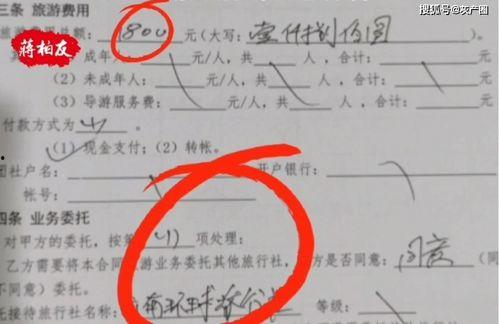 搜狐号@灰产圈
三条 旅游费用
旅游费用总额: 1800 元(大写: 壹仟捌佰圆
蒋柏友
成年人 元/人, 共 人, 合计: 元
(2) 未成年人: 元/人, 共 人, 合计: 元
(3) 导游服务费: 元/人, 共 人, 合计: 元
付款方式为 (1)
(1) 现金支付; (2) 转帐。
团社户名: 开户银行:
帐号:
四条 业务委托
对甲方的委托, 按第 (1) 项处理:
乙方需要将本合同旅游业务委托其他旅行社, 方是否同意: 同意 (同
不同意) 委托。
托接待旅行社名称: 等级: